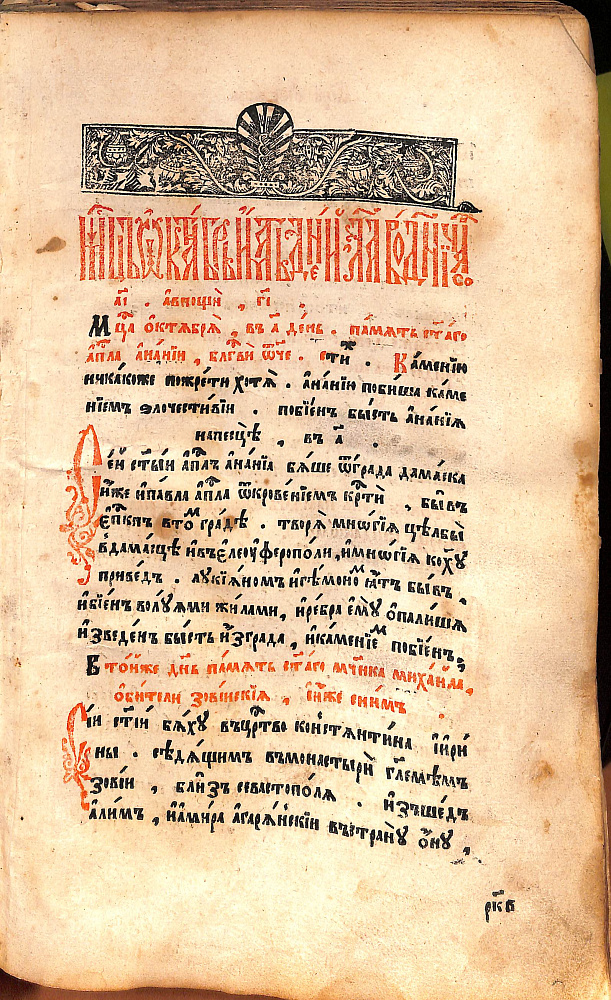 мцⷭ҇а октѧбрѧ , въ а҃ де́нь . па́мѧть ст҃а́го
а҆пⷭ҇ла а҆на́нїи , бл҃гⷭ҇ви ѿ́че . сти́ⷯ . Ка́менїю
ника́коже пожре́ти хотѧ̀ . а҆на́нїю поби́ша ка́ме
нїемъ ѕлочести́вїи . побїе́нъ бы́сть а҆на́нїѧ
на пе́сцѣ , въ а҃ .
Се́й ст҃ы́й а҆пⷭ҇лъ а҆на́нїа бѧ́ше ѿ гра́да дама́ска
и҆́же и҆ па́вла а҆пⷭ҇ла ѿкрове́нїемъ крⷭ҇ти́ , бы́въ
е҆пⷭ҇кпъ в то́ⷨ гра́дѣ . творѧ̀ мнѡ́гїѧ цѣлбы̀
в дама́сцѣ и҆ въ є҆леоуферопо́ли , и҆ мнѡ́гїѧ ко хрⷭ҇ту̀
приве́дъ . лукїѧ́номъ и҆ге́моноⷨ ꙗ҆́тъ бы́въ ,
и҆ бїе́нъ волу́ѧми жи́лами , и҆ ре́бра є҆мꙋ̀ ѡ҆пали́шѧ
и҆зведе́нъ бы́сть и҆з гра́да , и҆ ка́менїеⷨ побїе́нъ ,
В то́йже дн҃ь па́мѧть ст҃а́го мч҃нка михаи́ла ,
ѻ҆би́тели зові́нскїѧ , и҆́же с ни́мъ
Сі́и ст҃і́и бѧ́ху въ црⷭ҇тво констѧнти́на и҆ и҆ри́
ны . сѣдѧ́щимъ въ монастырѝ гл҃е́мѣмъ
зові́и , бли́зъ севастопо́лѧ . и҆зъше́дъ
а҆ли́мъ , и҆ а҆ми́ра а҆гарѧ́нскїи въ страну̀ ѻ҆́ну ,
рк҃в